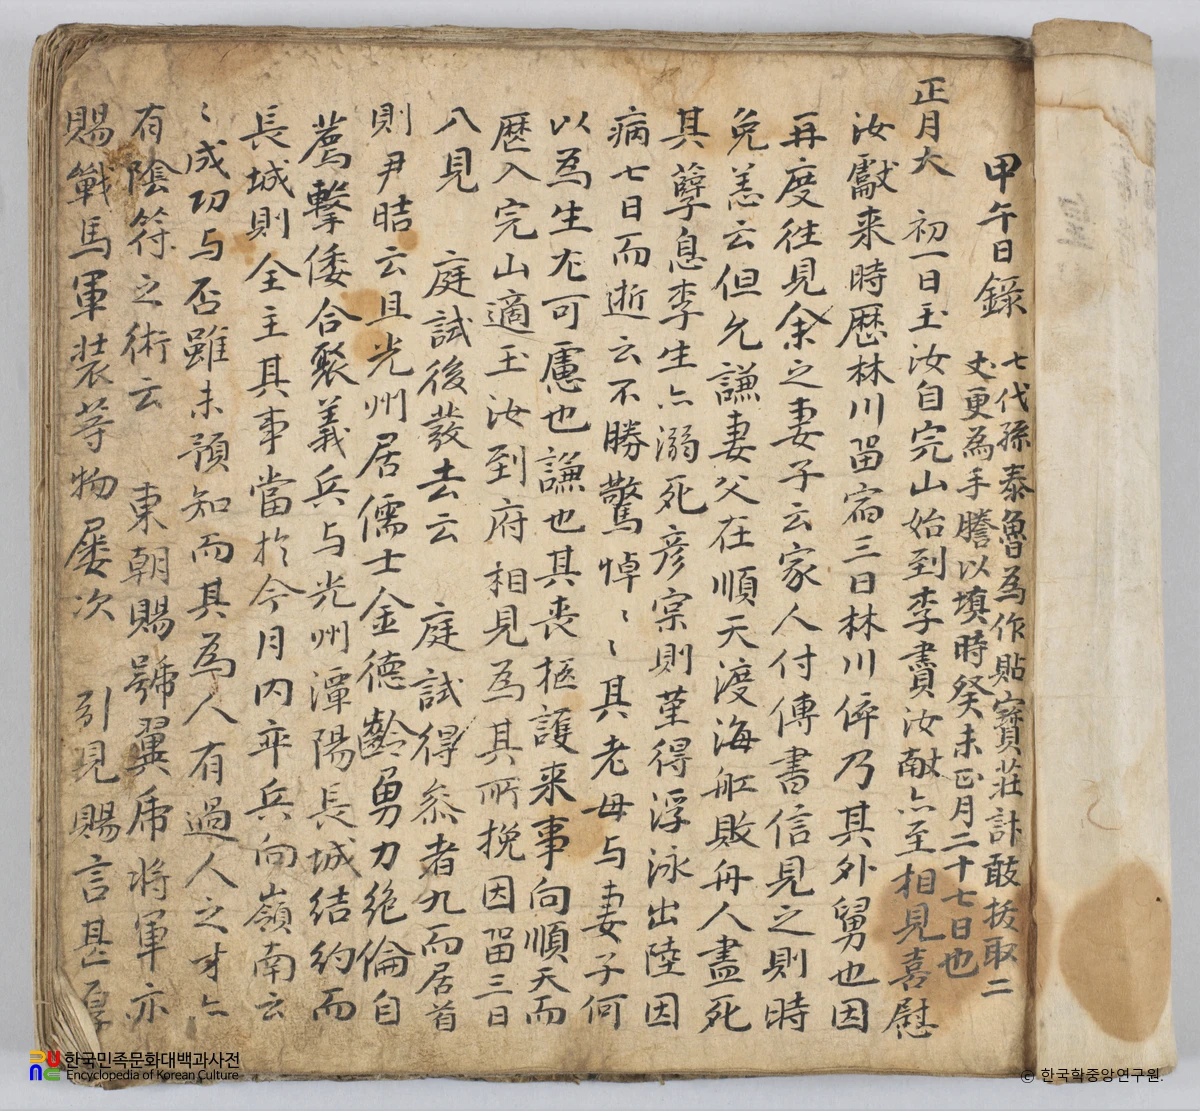 甲午日錄
七代孫泰魯為作貼寶莊計敢拔取二
丈更為手謄以填時癸未正月二十七日也
正月大 初一日玉汝自完山始到李賚汝献亦至相見喜慰
汝獻来時歷林川留宿三日林川倅乃其外舅也因
再度往見余之妻子云家人付傳書信見之則時
免恙云但允謙妻父在順天渡海舡敗舟人盡死
其孽息李生亦溺死彦宗則堇得浮泳出陸因
病七日而逝云不勝驚悼〻〻其老母与妻子何
以為生尤可慮也謙也其丧柩護来事向順天而
歷入完山適玉汝到府相見為其所挽因留三日
八見 庭試後发去云 庭試得叅者九而居首
則尹晧云且光州居儒士金德齡勇力绝倫自
薦擊倭合聚義兵与光州潭陽長城結約而
長城則全主其事當於今月内卒兵向嶺南云
〻成功与否雖未預知而其為人有過人之才亦
有陰符之術云 東朝賜號翼虎将軍亦
賜戰馬軍装等物屡次 引見賜言甚厚
한국민족문화대백과사전
Encyclopedia of Korean Culture
ⓒ 한국학중앙연구원.